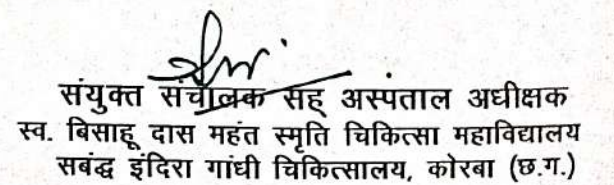 संयुक्त संचालक सह अस्पताल अधीक्षक
स्व. बिसाहू दास महंत स्मृति चिकित्सा महाविद्यालय
सबंद्ध इंदिरा गांधी चिकित्सालय, कोरबा (छ.ग.)